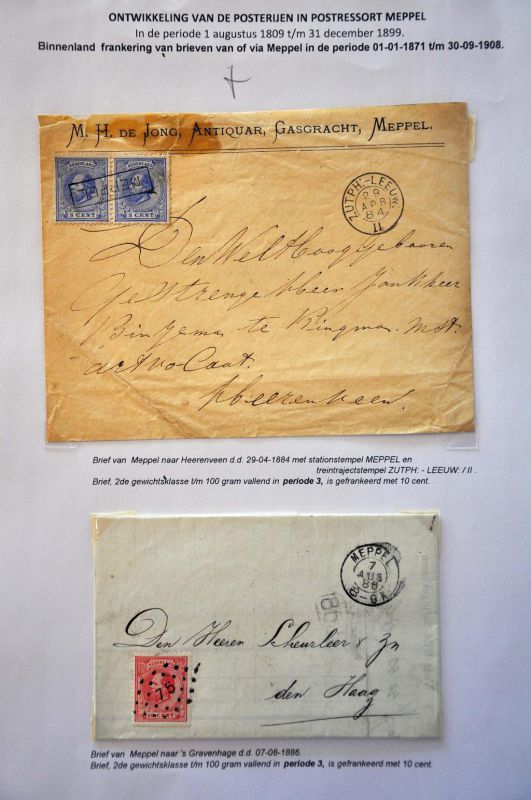 ONTWIKKELING VAN DE POSTERIJEN IN POSTRESSORT MEPPEL
In de periode 1 augustus 1809 t/m 31 december 1899.
Binnenland frankering van brieven van of via Meppel in de periode 01-01-1871 t/m 30-09-1908.
M. H. DE JONG, ANTIQUAR, GASGRACHT, MEPPEL.
NEDERLAND NEDERLAND
MEPPEL
5 CENT 5 CENT
ZUTPH:-LEEUW:
29
APR
84
II
Den WelHooggeboren
Gestrenge Heer Jonkheer
te
advocaat
Heerenveen.
Brief van Meppel naar Heerenveen d.d. 29-04-1884 met stationstempel MEPPEL en
treintrajectstempel ZUTPH: - LEEUW: / II .
Brief, 2de gewichtsklasse t/m 100 gram vallend in periode 3, is gefrankeerd met 10 cent.
MEPPEL
7
AUG
86
Den Heeren Scheurleer & Zn
den Haag
NEDERLAND
76
10 CENT
Brief van Meppel naar 's Gravenhage d.d. 07-08-1886.
Brief, 2de gewichtsklasse t/m 100 gram vallend in periode 3, is gefrankeerd met 10 cent.